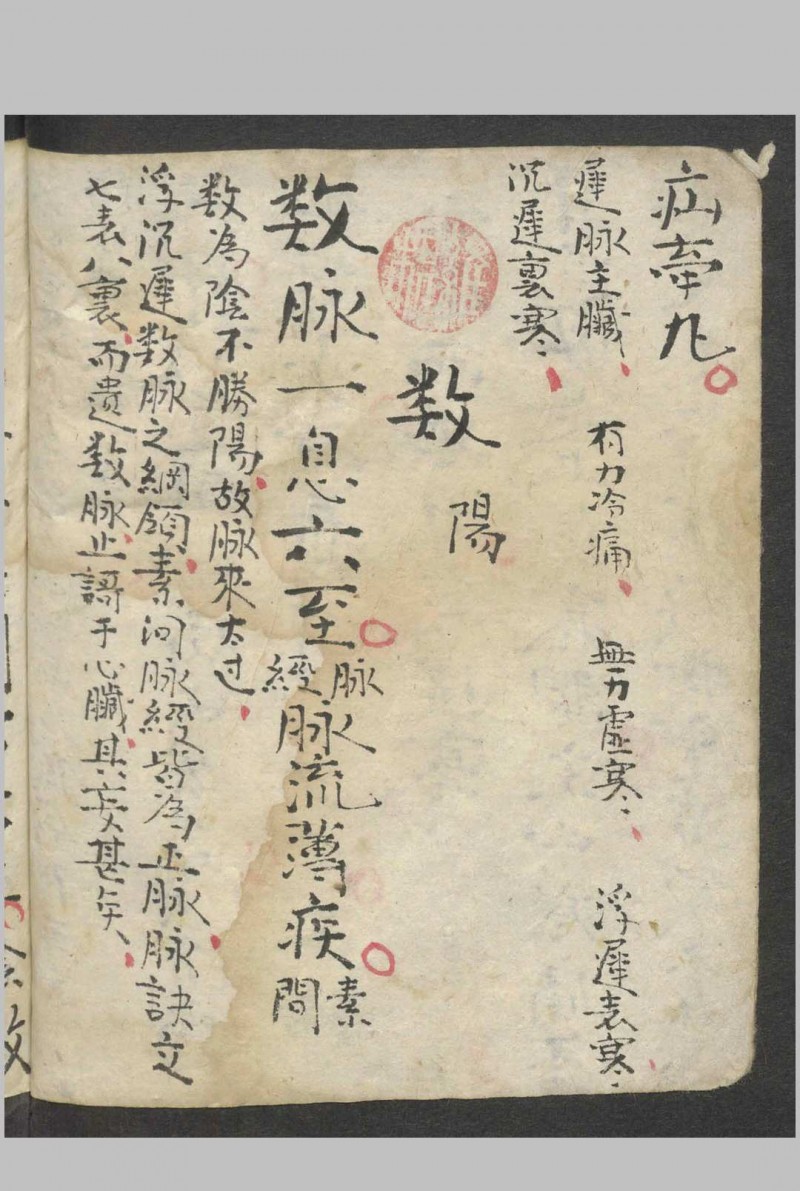 疝牽丸
遲脉主臟 有力冷痛 無力虛寒 浮遲表寒
沉遲裏寒
数 陽
数脉一息六至脉經脉流薄疾素問
数為陰不勝陽故脉來太过
浮沉遲数脉之綱領素问脉經皆為正脉脉訣立
七表八裏而遺数脉止謌于心臟其妄甚矣